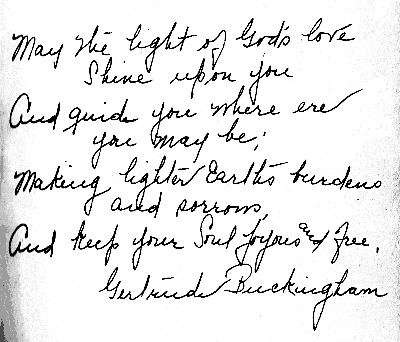 May the light of God's love
Shine upon you
And guide you where ere
you may be;
Making lighter Earth's burdens
and sorrows,
And keep your Soul joyous and free.
Gertrude Buckingham